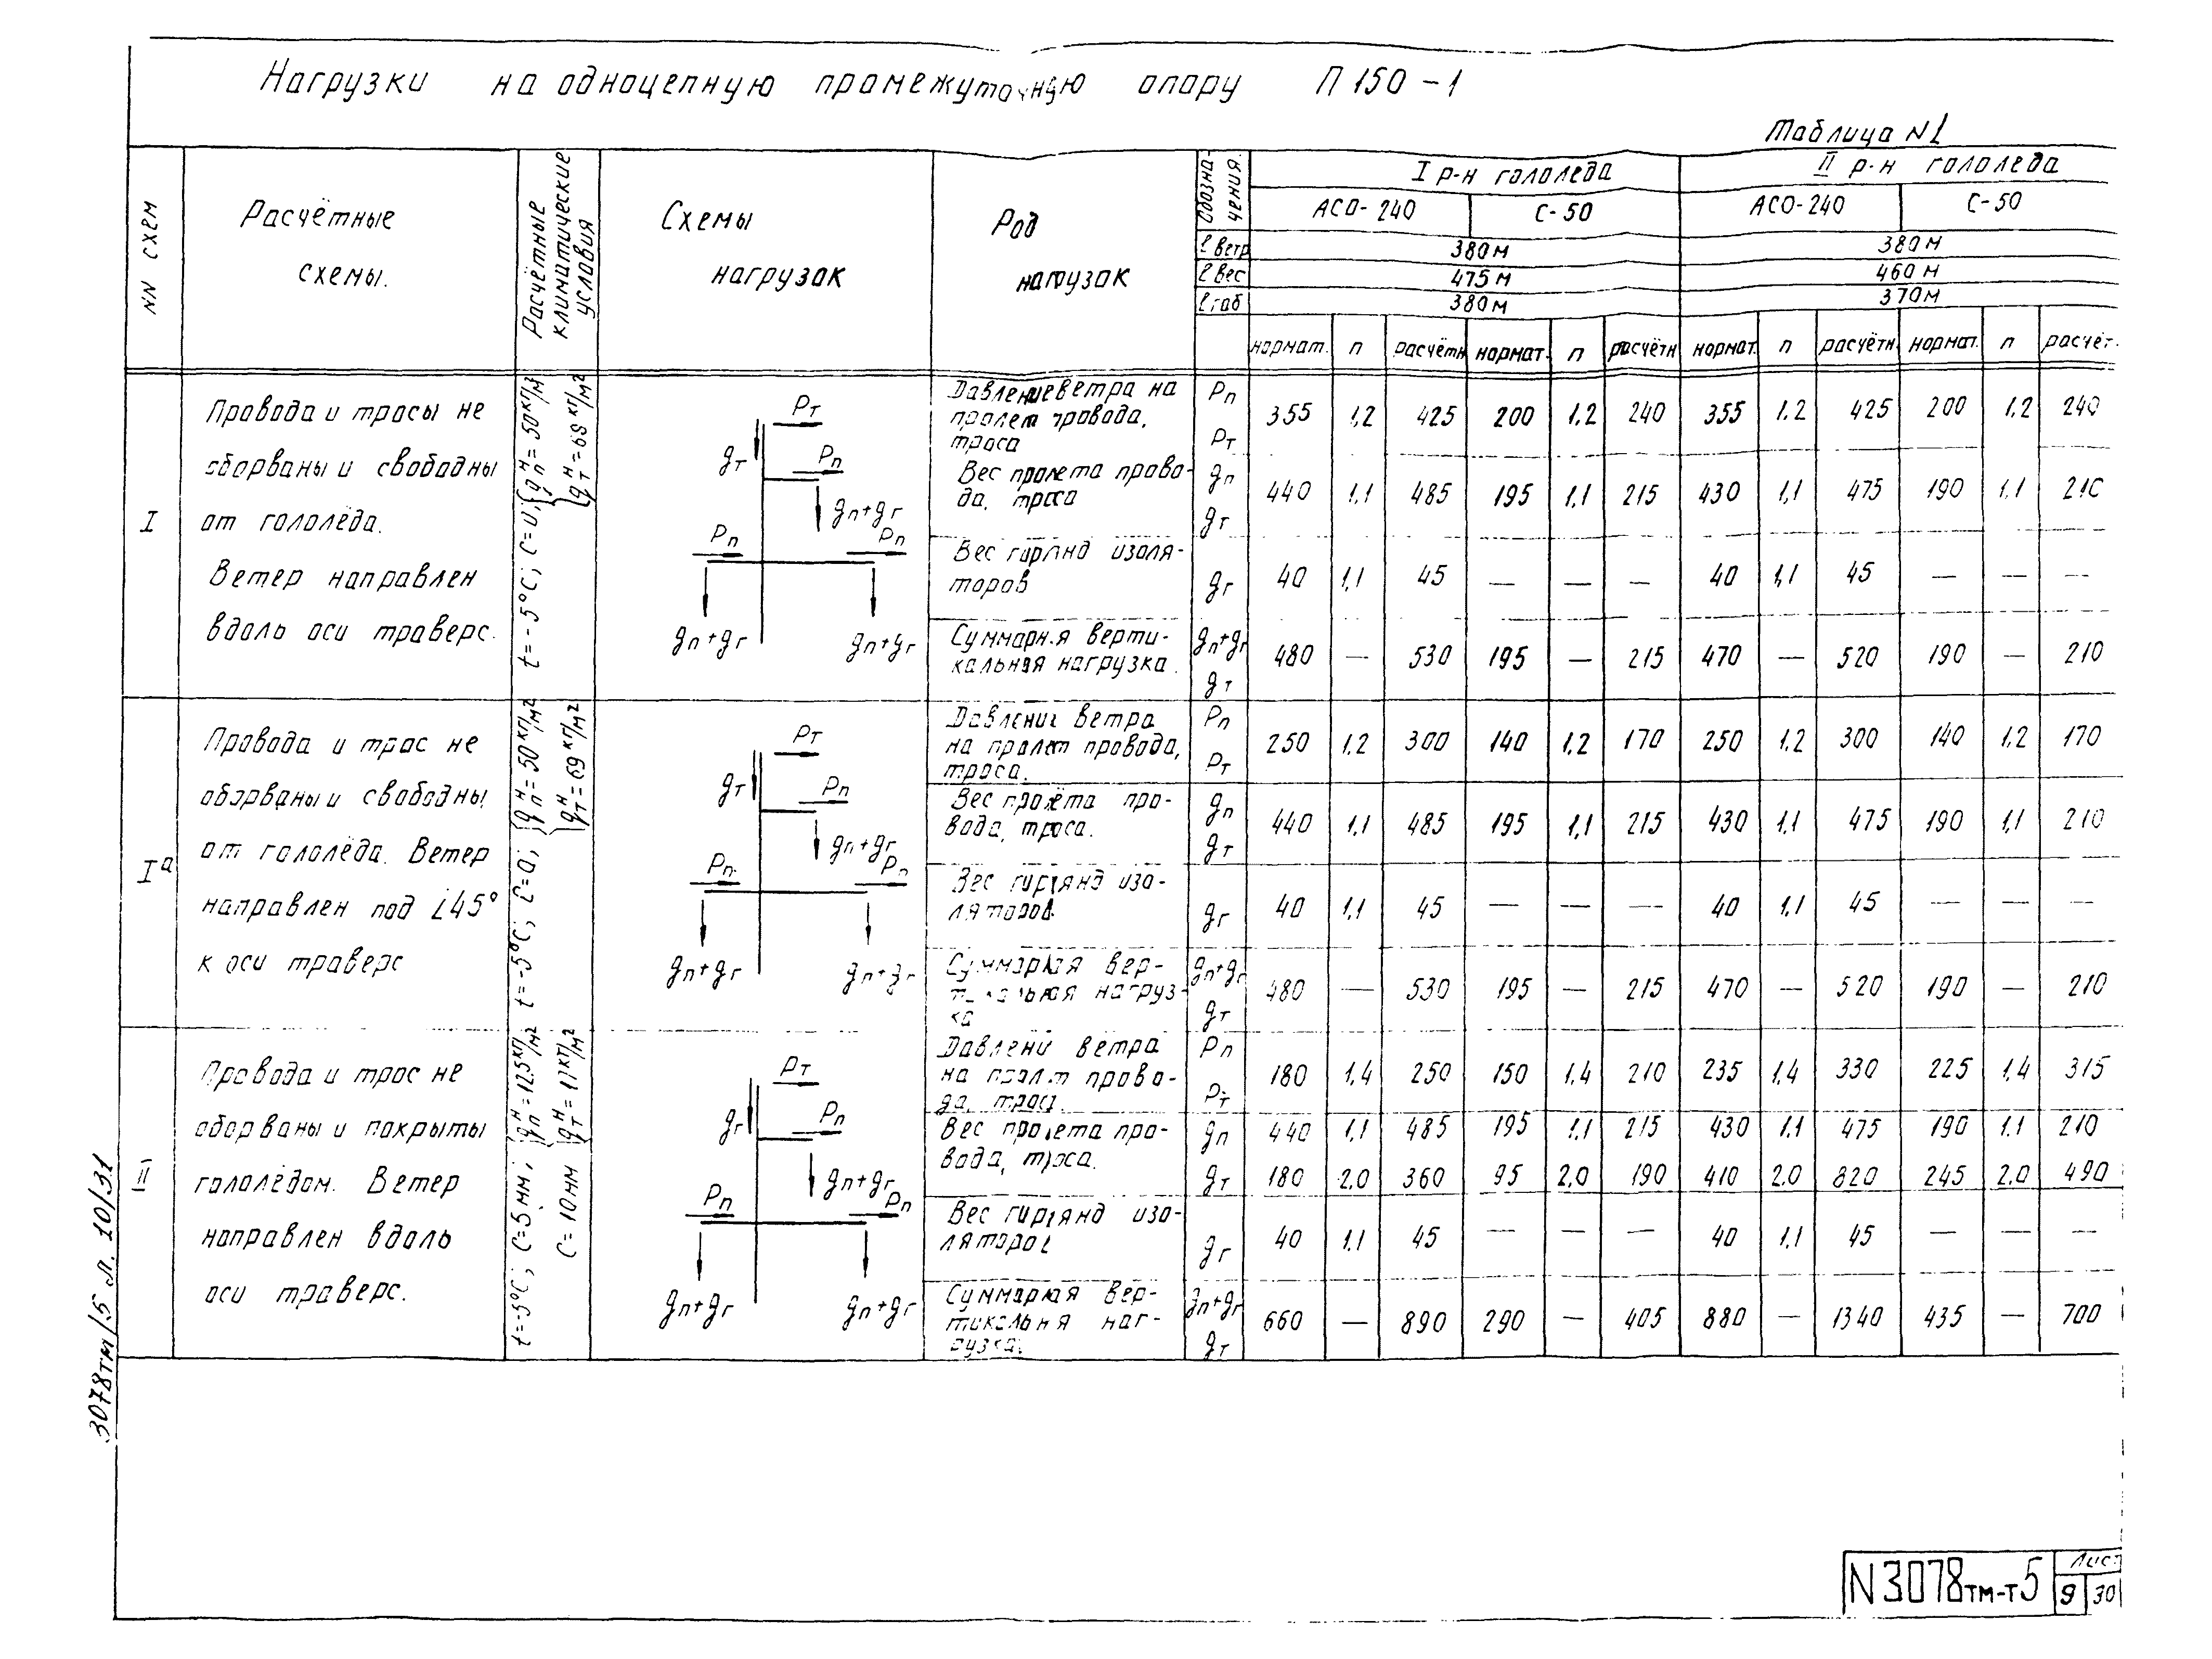 Нагрузки на одноцепную промежуточную опору П 150 - 1
Таблица N 1
NN схем
Расчётные схемы.
Расчётные климатические условия
Схемы нагрузок
Род нагрузок
Обозна-чения.
I р-н гололеда
II р-н гололеда
АСО-240 С-50 АСО-240 С-50
l ветр 380 м 380 м
l вес 475 м 460 м
l габ 380 м 370 м
нормат. n расчётн нормат. n расчётн нормат. n расчётн. нормат. n расчёт.
I
Провода и тросы не
оборваны и свободны
от гололёда.
Ветер направлен
вдоль оси траверс.
t = -5°C; C=0; { qнп = 50 кг/м²
qнт = 68 кг/м²
Pт
gт Pп
gп+gг
Pп Pп
gп+gг gп+gг
Давление ветра на
пролет провода,
троса
Pп
Pт
355 1,2 425 200 1,2 240 355 1,2 425 200 1,2 240
Вес пролета прово-
да, троса
gп
gт
440 1,1 485 195 1,1 215 430 1,1 475 190 1,1 210
Вес гирлянд изоля-
торов
gг
40 1,1 45 — — — 40 1,1 45 — — —
Суммарная верти-
кальная нагрузка.
gп+gг
gт
480 — 530 195 — 215 470 — 520 190 — 210
Iа
Провода и трос не
оборваны и свободны
от гололёда. Ветер
направлен под ∠45°
к оси траверс
t=-5°C; C=0; { qнп = 50 кг/м²
qнт = 69 кг/м²
Pт
gт Pп
gп+gг
Pп. Pп
gп+gг gп+gг
Давление ветра
на пролет провода,
троса.
Pп
Pт
250 1,2 300 140 1,2 170 250 1,2 300 140 1,2 170
Вес пролёта про-
вода, троса.
gп
gт
440 1,1 485 195 1,1 215 430 1,1 475 190 1,1 210
Вес гирлянд изо-
ляторов.
gг
40 1,1 45 — — — 40 1,1 45 — — —
Суммарная вер-
тикальная нагруз-
ка
gп+gг
gт
480 — 530 195 — 215 470 — 520 190 — 210
II
Провода и трос не
оборваны и покрыты
гололёдом. Ветер
направлен вдоль
оси траверс.
t=-5°C; C=5 мм; { qнп = 12,5 кг/м²
C=10 мм { qнт = 17 кг/м²
Pт
gг Pп
gп+gг
Pп Pп
gп+gг gп+gг
Давлени ветра
на пролет прово-
да, троса.
Pп
Pт
180 1,4 250 150 1,4 210 235 1,4 330 225 1,4 315
Вес пролета про-
вода, троса.
gп 440 1,1 485 195 1,1 215 430 1,1 475 190 1.1 210
gт 180 2,0 360 95 2,0 190 410 2.0 820 245 2.0 490
Вес гирлянд изо-
ляторов
gг
40 1,1 45 — — — 40 1,1 45 — — —
Суммарная вер-
тикальня наг-
рузка.
gп+gг
gт
660 — 890 290 — 405 880 — 1340 435 — 700
3078тм/5 л. 10/31
N 3078тм-т5
Лист
9 30